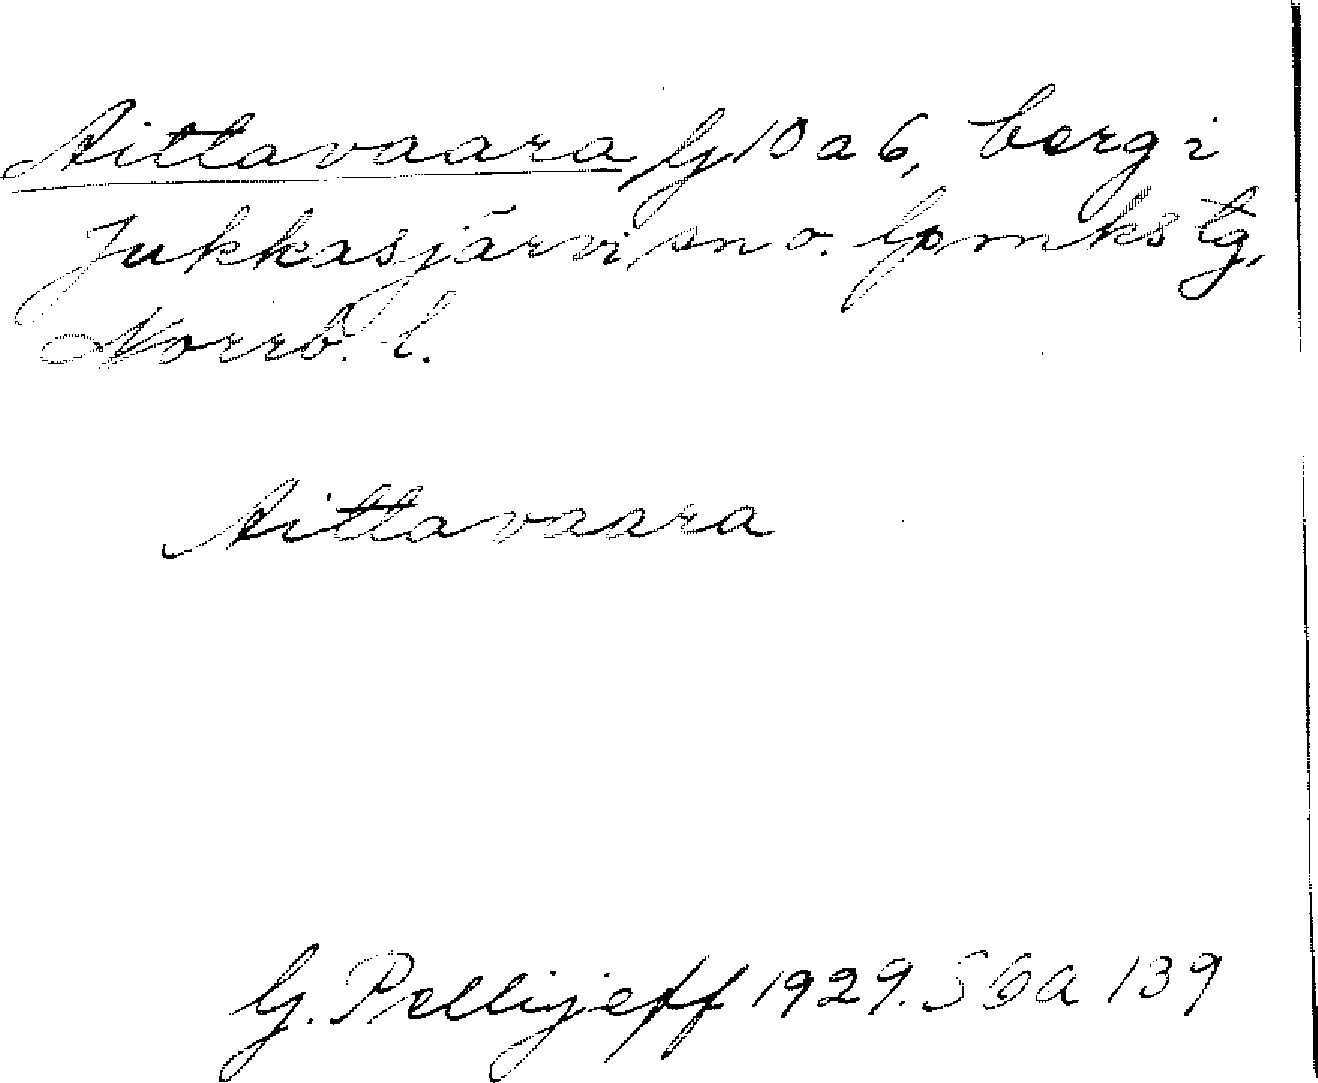 Aittavaara G 10 a 6, berg i
Jukkasjärvi sn o. lpmks tg,
Norrb. l.
Aittavaara
G. Pellijeff 1929. S 6a 139